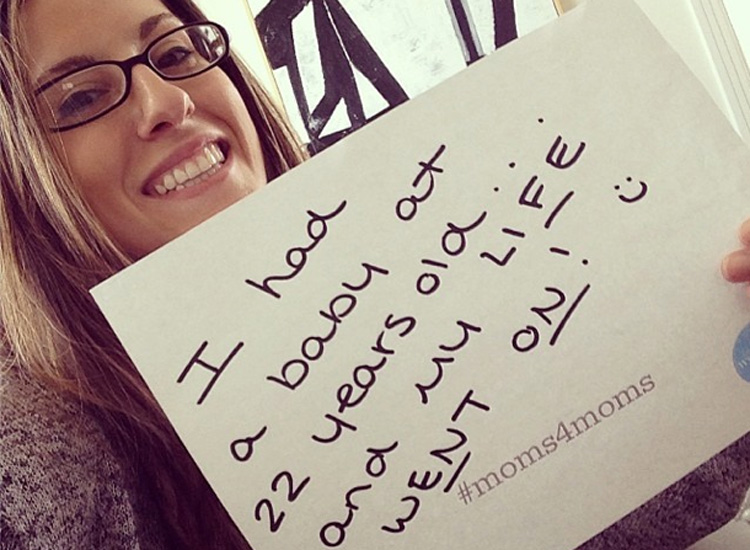 I had
a baby at
22 years old...
and my LIFE
WENT ON! :)
#moms4moms